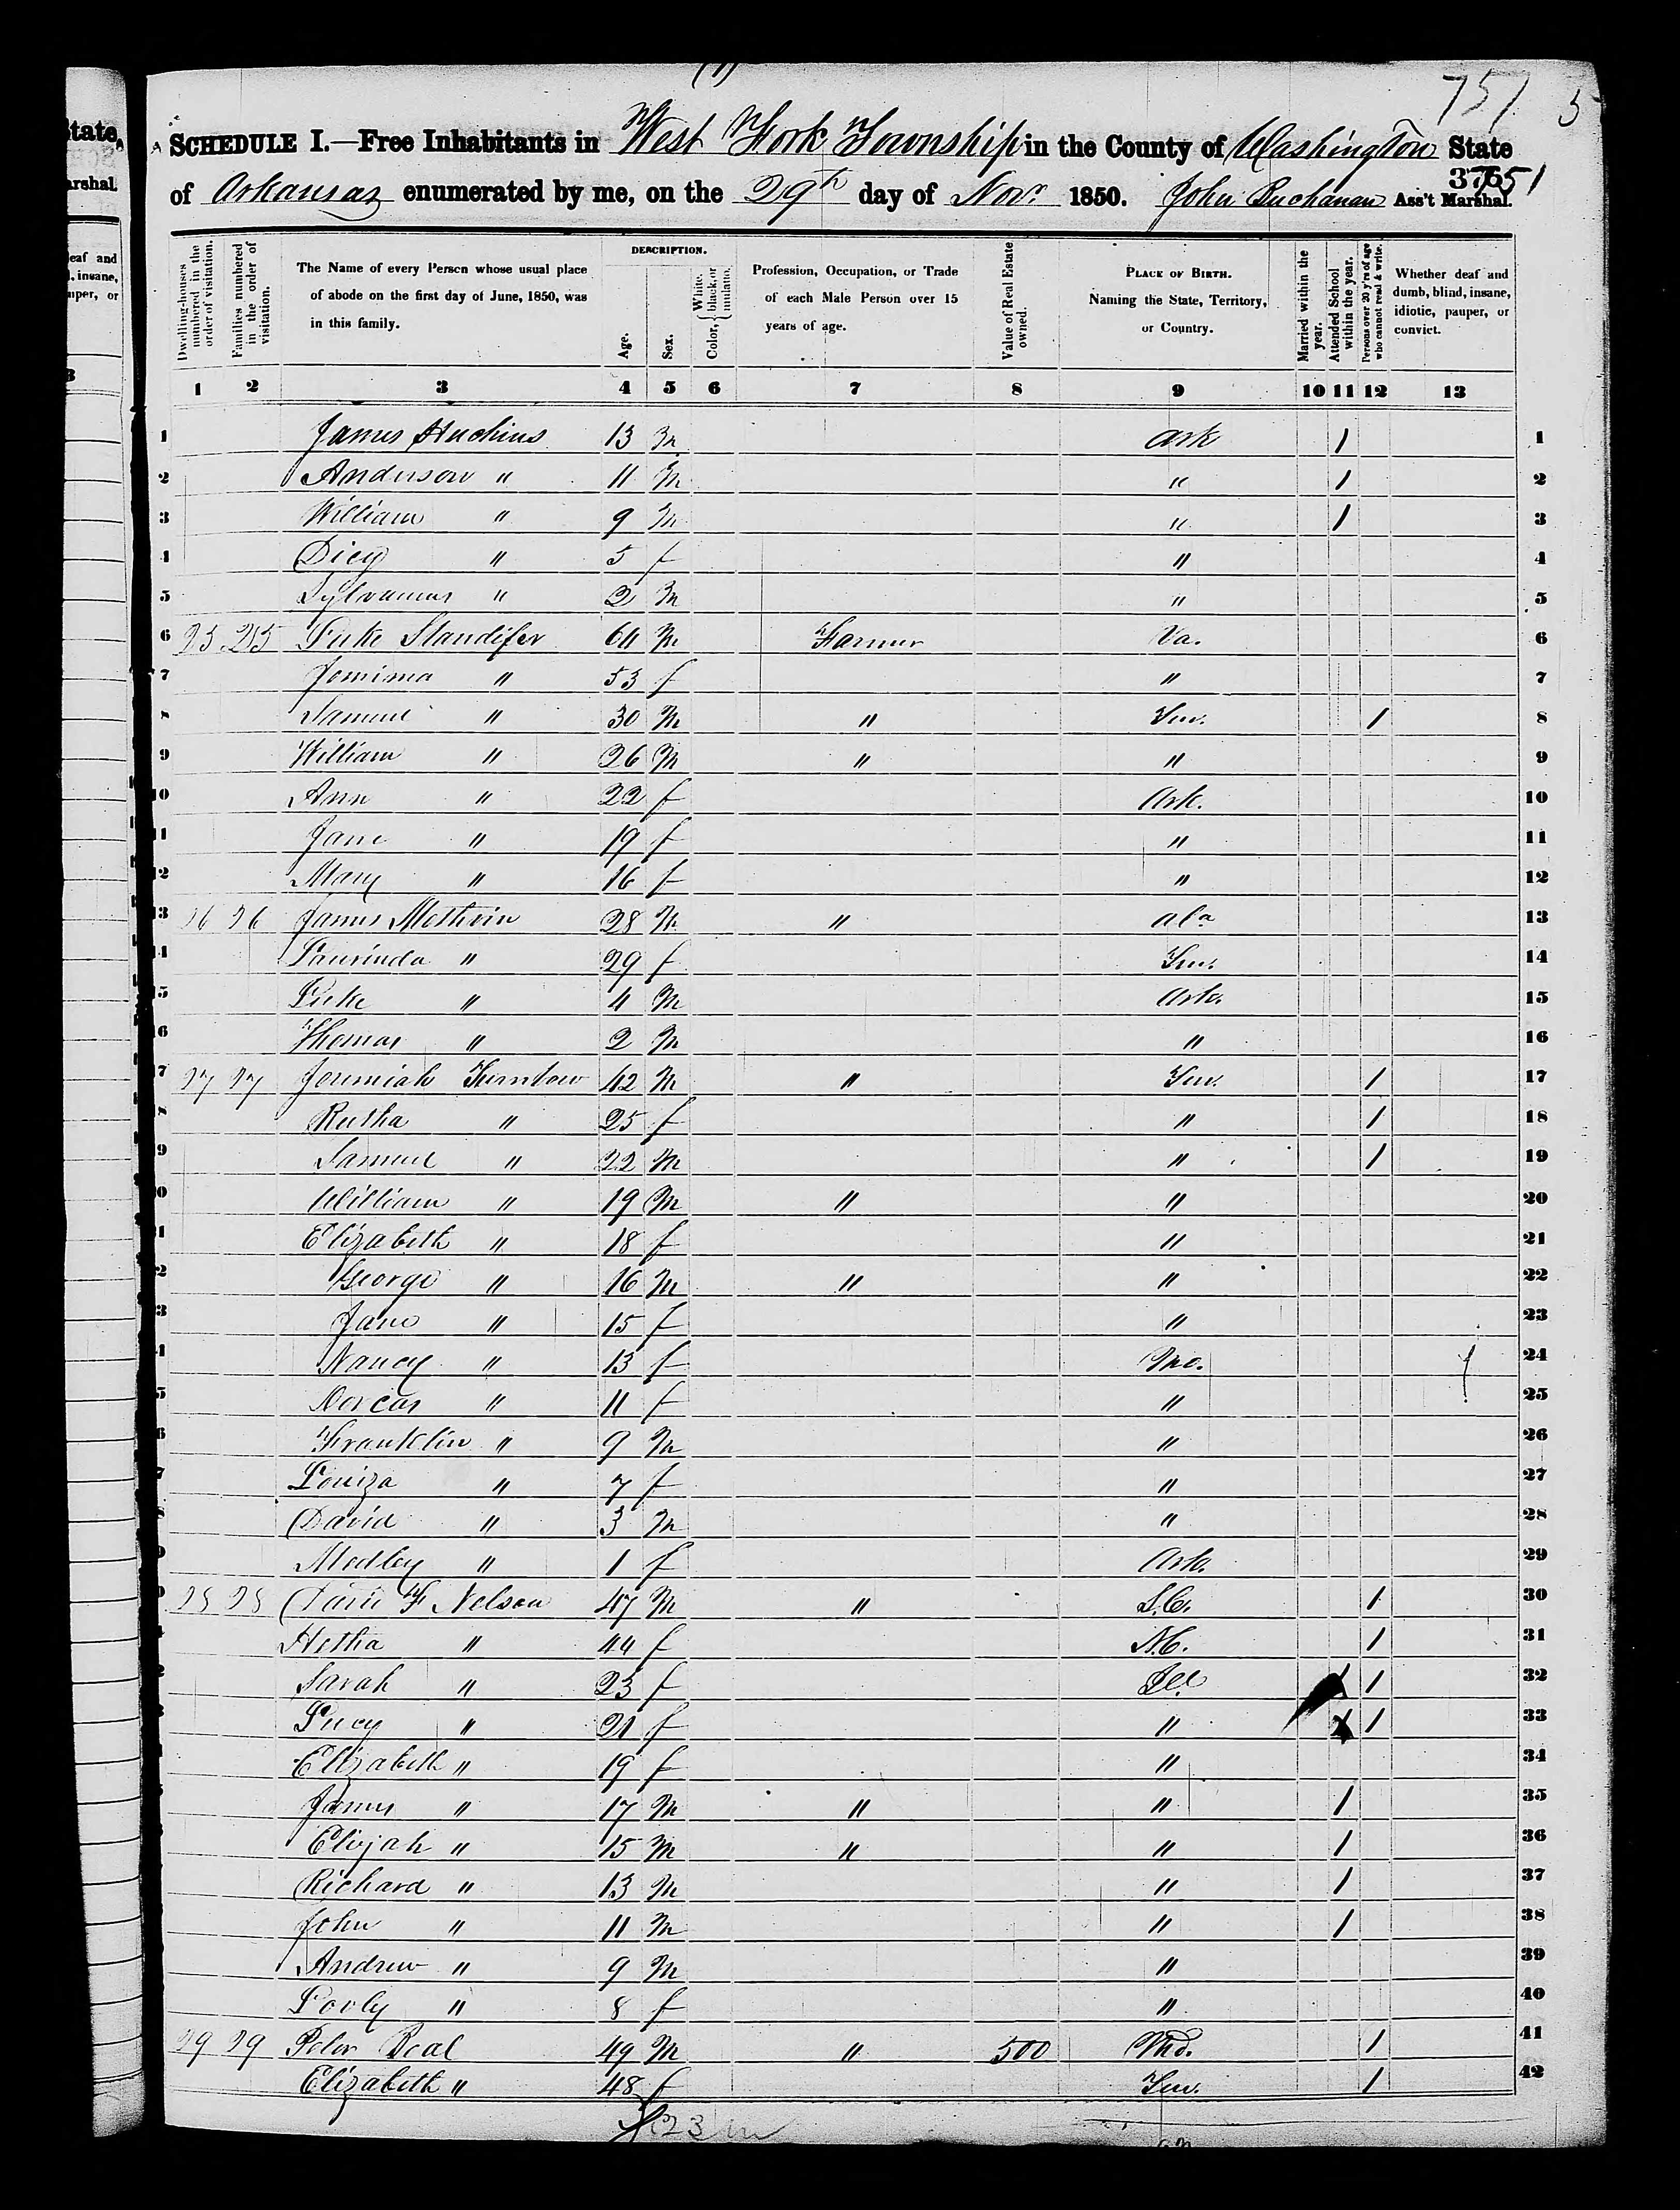 (1)
757 5
SCHEDULE I.—Free Inhabitants in West Fork Township in the County of Washington State
of Arkansas enumerated by me, on the 29th day of Novr 1850. John Buchanan Ass't Marshal.
751
DESCRIPTION.
Dwelling-houses numbered in the order of visitation.
Families numbered in the order of visitation.
The Name of every Person whose usual place of abode on the first day of June, 1850, was in this family.
Age.
Sex.
Color, { White, black, or mulatto.
Profession, Occupation, or Trade of each Male Person over 15 years of age.
Value of Real Estate owned.
PLACE OF BIRTH. Naming the State, Territory, or Country.
Married within the year.
Attended School within the year.
Persons over 20 y'rs of age who cannot read & write.
Whether deaf and dumb, blind, insane, idiotic, pauper, or convict.
1 2 3 4 5 6 7 8 9 10 11 12 13
1 James Huchins 13 M Ark 1 1
2 Anderson " 11 M " 1 2
3 William " 9 M " 1 3
4 Dicy " 5 f " 4
5 Sylvanus " 2 M " 5
6 25 25 Luke Standifer 64 M Farmer Va. 6
7 Jemima " 53 f " 7
8 Samuel " 30 M " Ten. 1 8
9 William " 26 M " " 9
10 Ann " 22 f Ark. 10
11 Jane " 19 f " 11
12 Mary " 16 f " 12
13 26 26 James Mothein 28 M " ala 13
14 Laurinda " 29 f Ten. 14
15 Luke " 4 M Ark. 15
16 Thomas " 2 M " 16
17 27 27 Jeremiah Turnbow 42 M " Ten. 1 17
18 Rutha " 25 f " 1 18
19 Samuel " 22 M " 1 19
20 William " 19 M " " 20
21 Elizabeth " 18 f " 21
22 George " 16 M " " 22
23 Jane " 15 f " 23
24 Nancy " 13 f Mo. 24
25 Dorcas " 11 f " 25
26 Franklin " 9 M " 26
27 Louiza " 7 f " 27
28 David " 3 M " 28
29 Medley " 1 f Ark. 29
30 28 28 F Nelson 47 M " S.C. 1 30
Hetha " 44 f N.C. 1 31
Sarah " 23 f Ill 1 32
Lucy " 21 f " 1 33
Elizabeth " 19 f " 34
James " 17 M " " 1 35
Elijah " 15 M " " 1 36
Richard " 13 M " 1 37
John " 11 M " 1 38
Andrew " 9 M " 39
" 8 f " 40
29 29 Peter Beal 49 M " 500 Md. 1 41
Elizabeth " 48 f Ten. 1 42
23 m